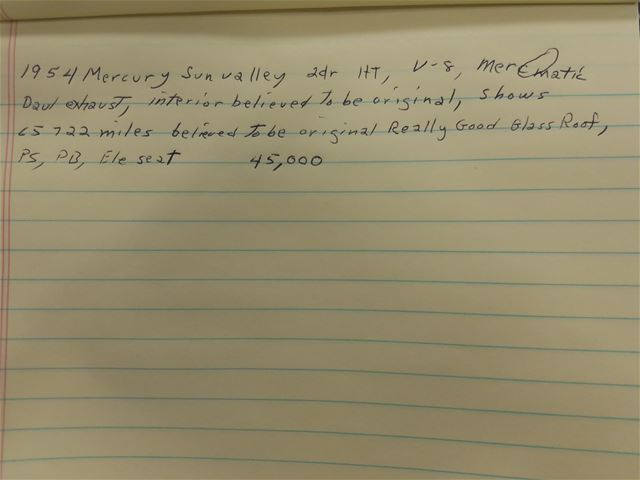 1954 Mercury Sunvalley 2dr HT, V-8, Mercmatic
Daul exhaust, interior believed to be original, shows
65722 miles believed to be original Really Good Glass Roof,
PS, PB, Ele seat 45,000